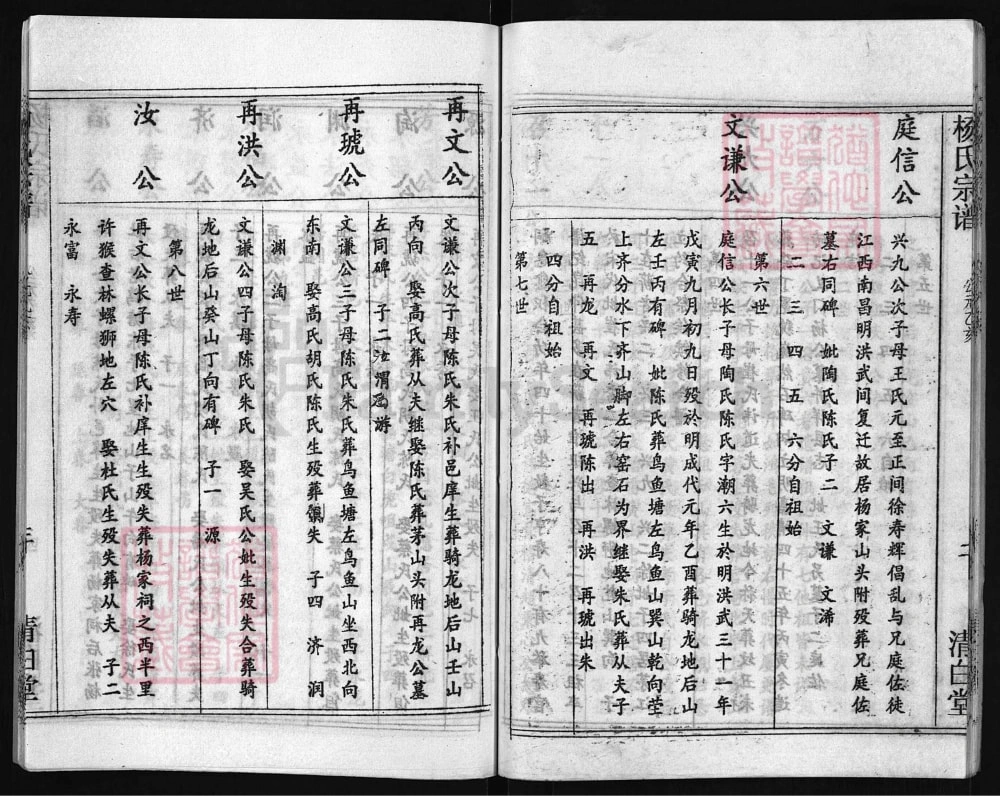 杨氏宗谱
清白堂
庭信公
兴九公次子母王氏元至正间徐寿辉倡乱与兄庭佐徙
江西南昌明洪武间复迁故居杨家山头附殁葬兄庭佐
墓右同碑 妣陶氏陈氏子二 文谦 文浠
一 二 三 四 五 六分自祖始
第六世
文谦公
庭信公长子母陶氏陈氏字潮六生於明洪武三十一年
戊寅九月初九日殁於明成代元年乙酉葬骑龙地后山
左壬丙有碑 妣陈氏葬鸟鱼塘左鸟鱼山巽山乾向茔
上齐分水下齐山脚左右窑石为界继娶朱氏葬从夫子
五 再龙 再文 再琥陈出 再洪 再琥出朱
四分自祖始
第七世
再文公
文谦公次子母陈氏朱氏补邑庠生葬骑龙地后山壬山
丙向 娶高氏葬从夫继娶陈氏葬茅山头附再龙公墓
左同碑 子二 汝渭 游
再琥公
文谦公三子母陈氏朱氏葬鸟鱼塘左鸟鱼山坐西北向
东南 娶高氏胡氏陈氏生殁葬俱失 子四 济 润
渊 淘
再洪公
文谦公四子母陈氏朱氏 娶吴氏公妣生殁失合葬骑
龙地后山癸山丁向有碑 子一 源
第八世
汝 公
再文公长子母陈氏补庠生生殁失葬杨家祠之西半里
许猴查林螺狮地左穴 娶杜氏生殁失葬从夫 子二
永富 永寿
三
清白堂